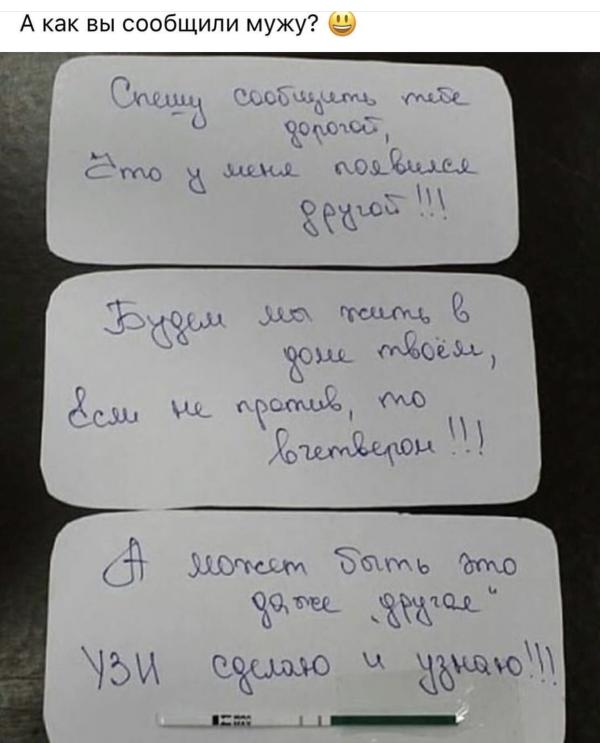 А как вы сообщили мужу? 😃
Спешу сообщить тебе
дорогой,
Что у меня появился
другой!!!
Будем мы жить в
доме твоём,
Если не против, то
вчетвером!!!
А может быть это
даже „другая"
УЗИ сделаю и узнаю!!!